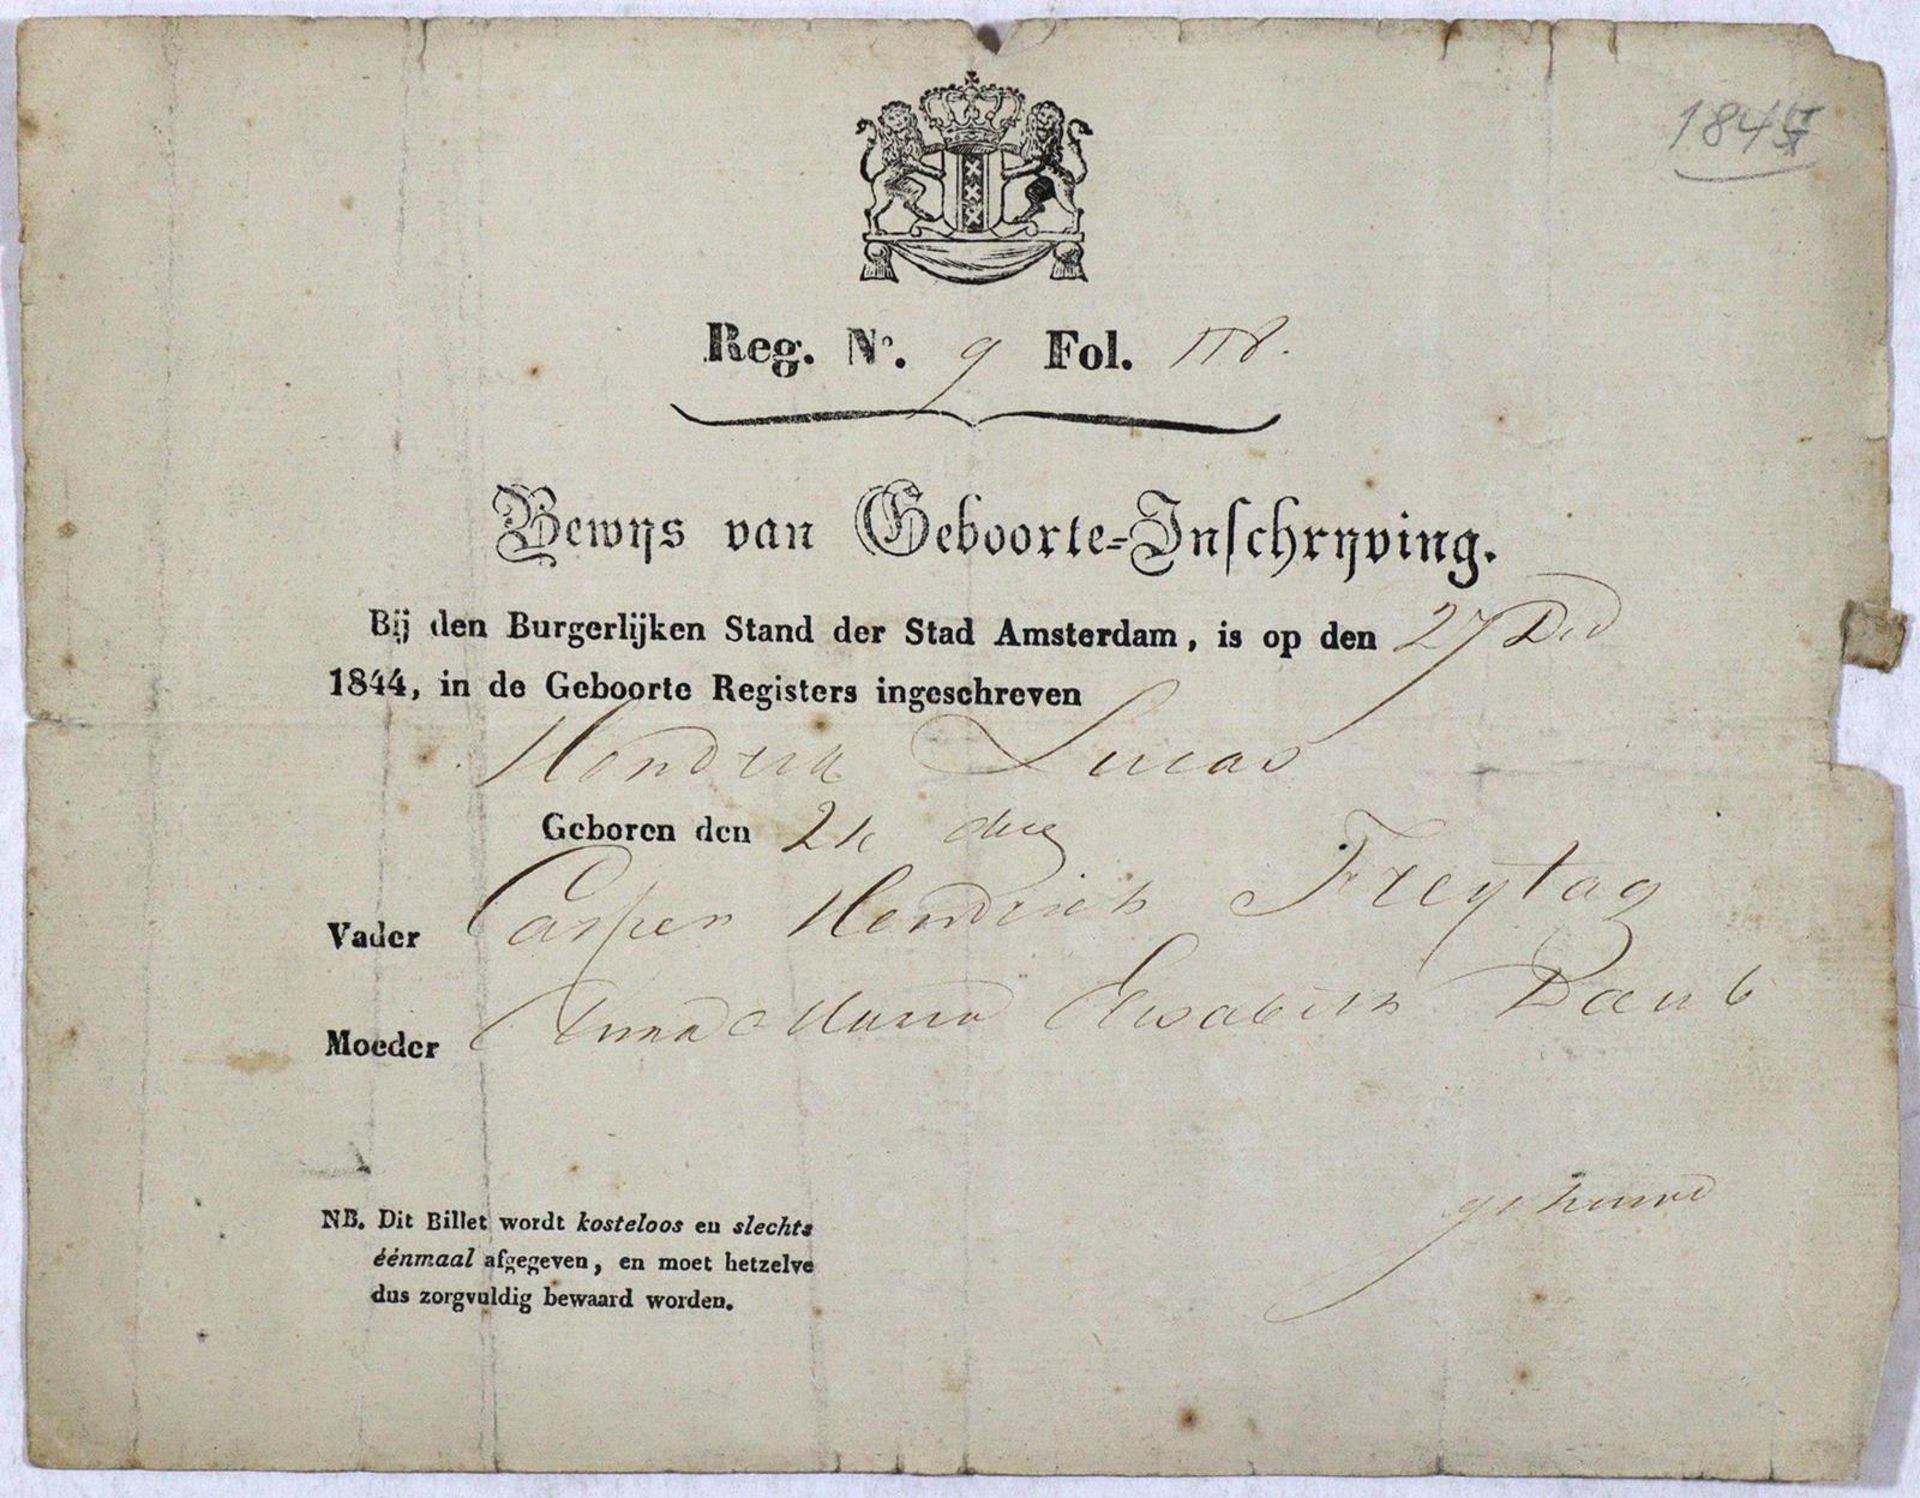 184
Reg. No. 9 Fol. 118.
Bewys van Geboorte-Inschryving.
Bij den Burgerlijken Stand der Stad Amsterdam, is op den 27
1844, in de Geboorte Registers ingeschreven
Hendrik Lucas
Geboren den 24 dec
Vader Casper Hendrich Freytag
Moeder Anna Maria Elisabeth Daub
gehuwd
NB. Dit Billet wordt kosteloos en slechts
éénmaal afgegeven, en moet hetzelve
dus zorgvuldig bewaard worden.